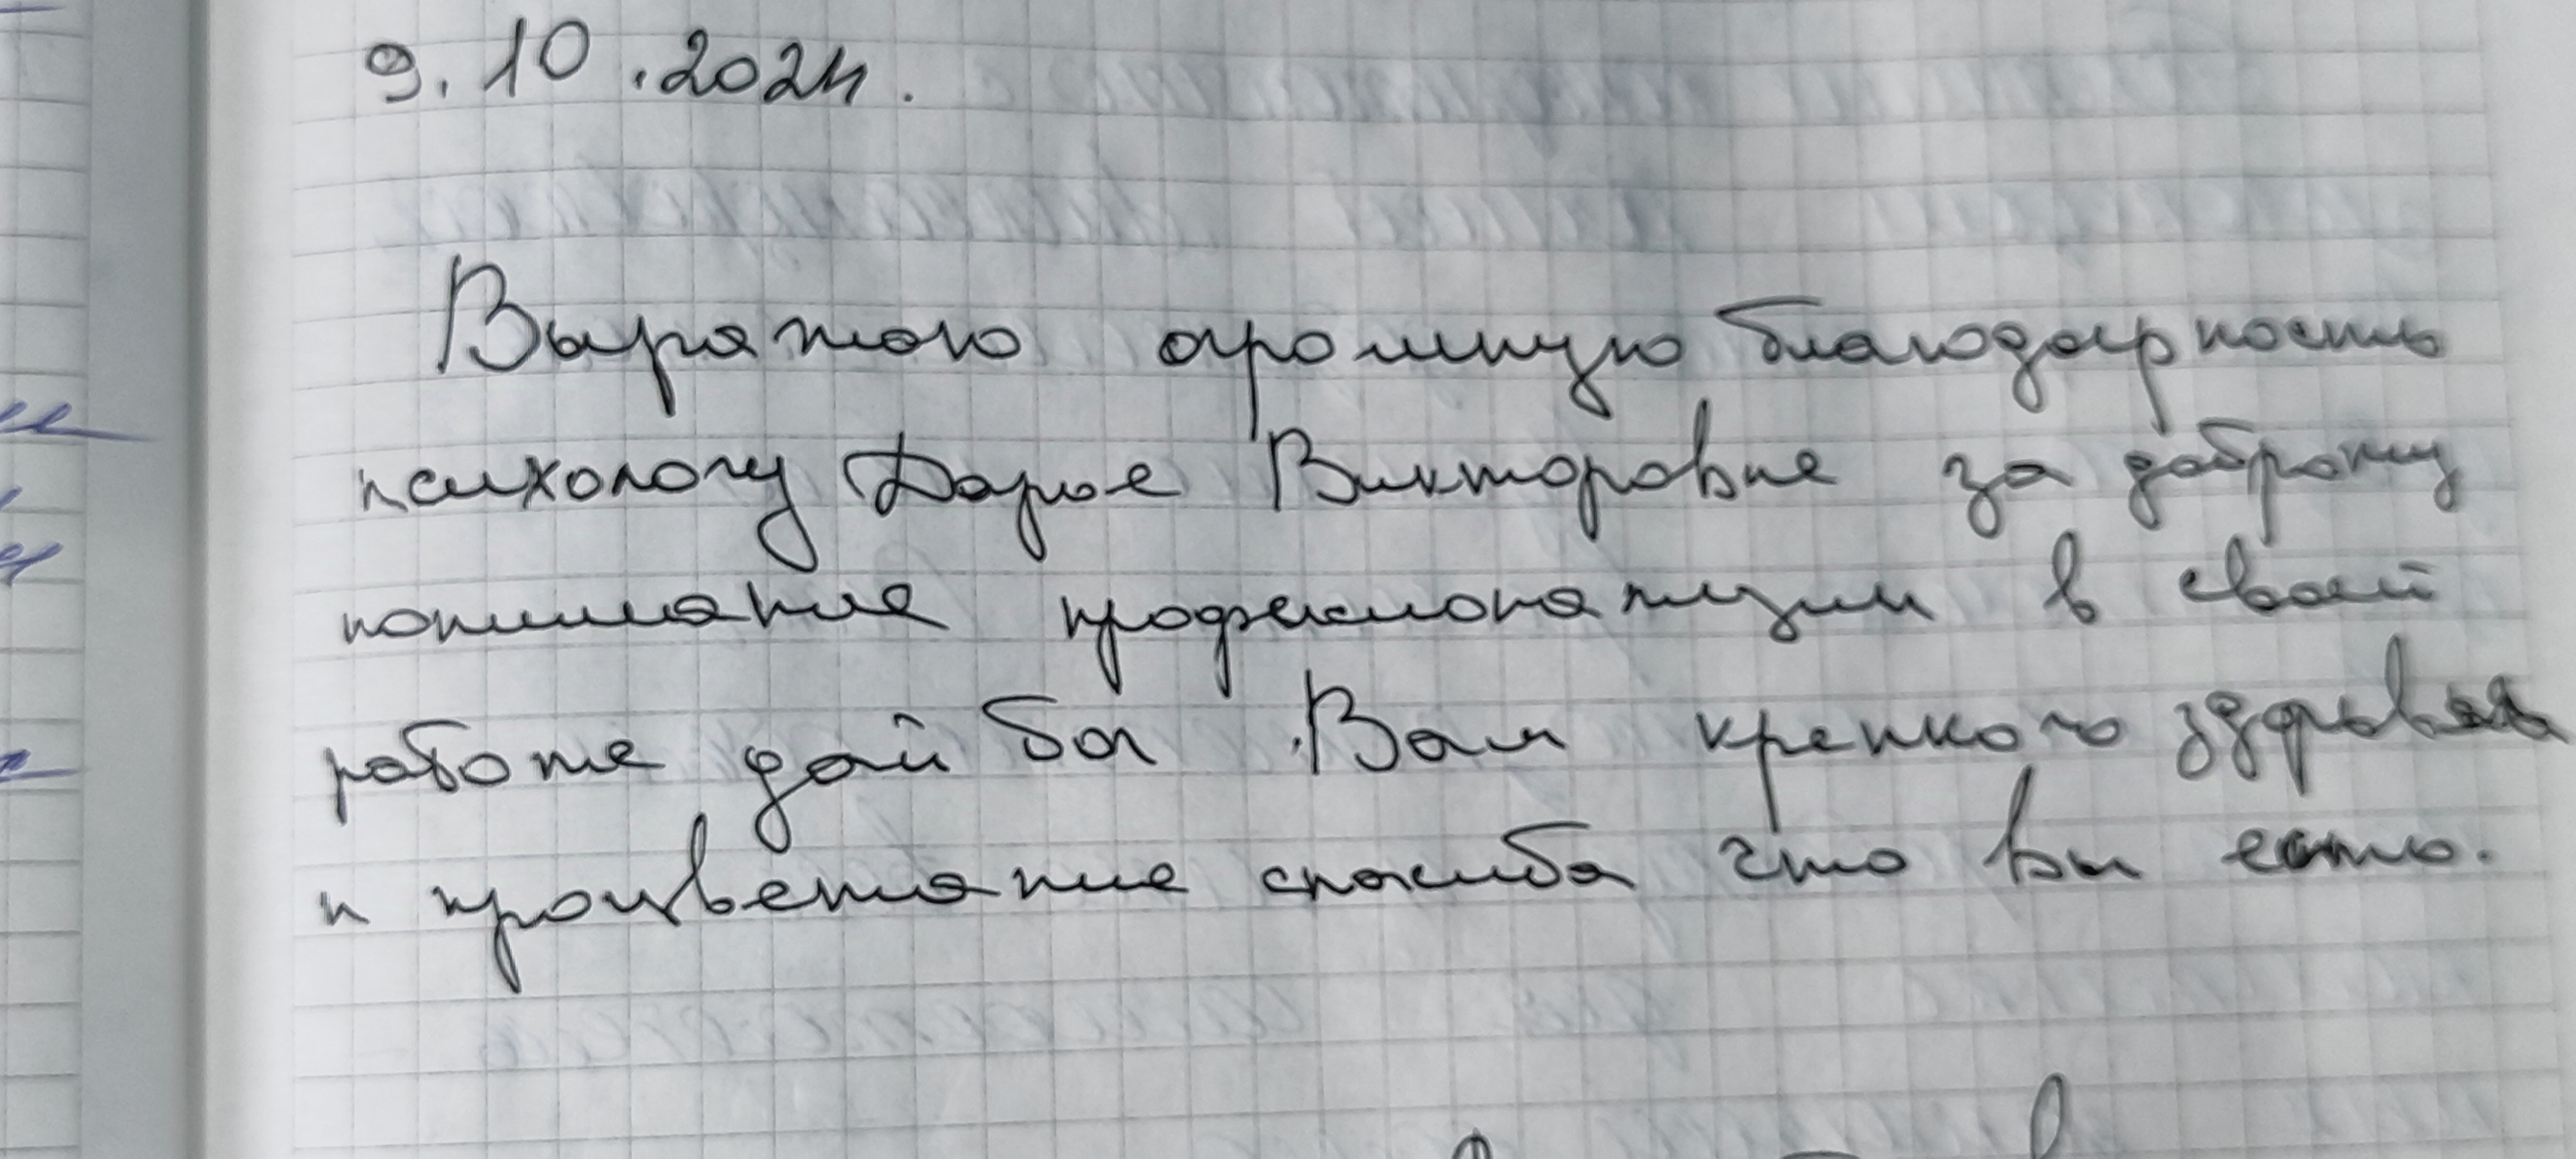 9.10.2024.
Выражаю огромную благодарность
психологу Дарье Викторовне за доброту
понимание професионализм в своей
работе дай бог Вам крепкого здоровья
и процветание спасиба что вы есть.